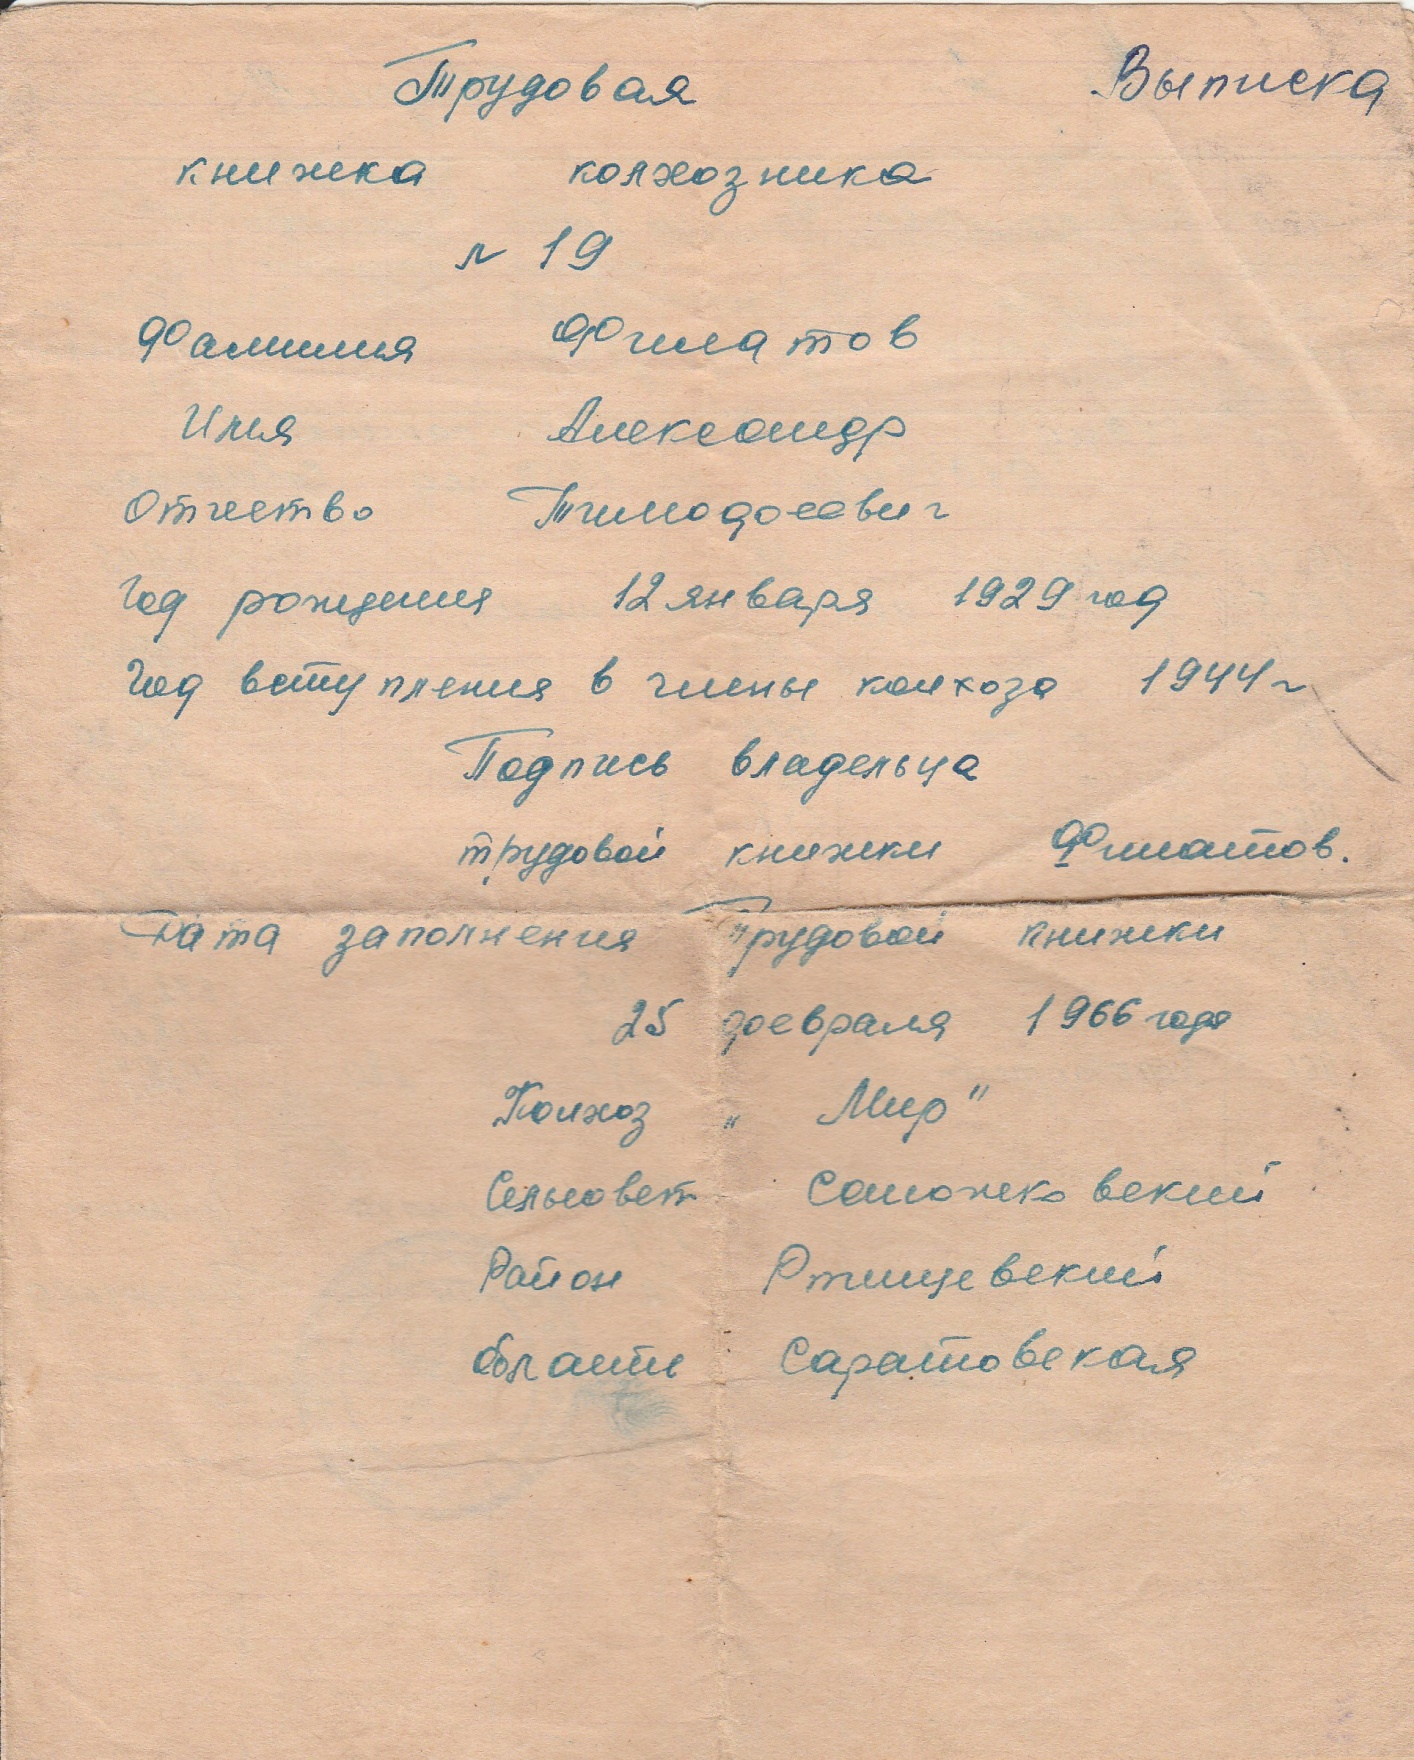 Выписка
Трудовая
книжка колхозника
№ 19
Фамилия Филатов
Имя Александр
Отчество Тимофеевич
Год рождения 12 января 1929 год
Год вступления в члены колхоза 1944 г
Подпись владельца
трудовой книжки Филатов.
Дата заполнения Трудовой книжки
25 февраля 1966 года
Колхоз „ Мир"
Сельсовет Сапожковский
Район Ртищевский
область Саратовская